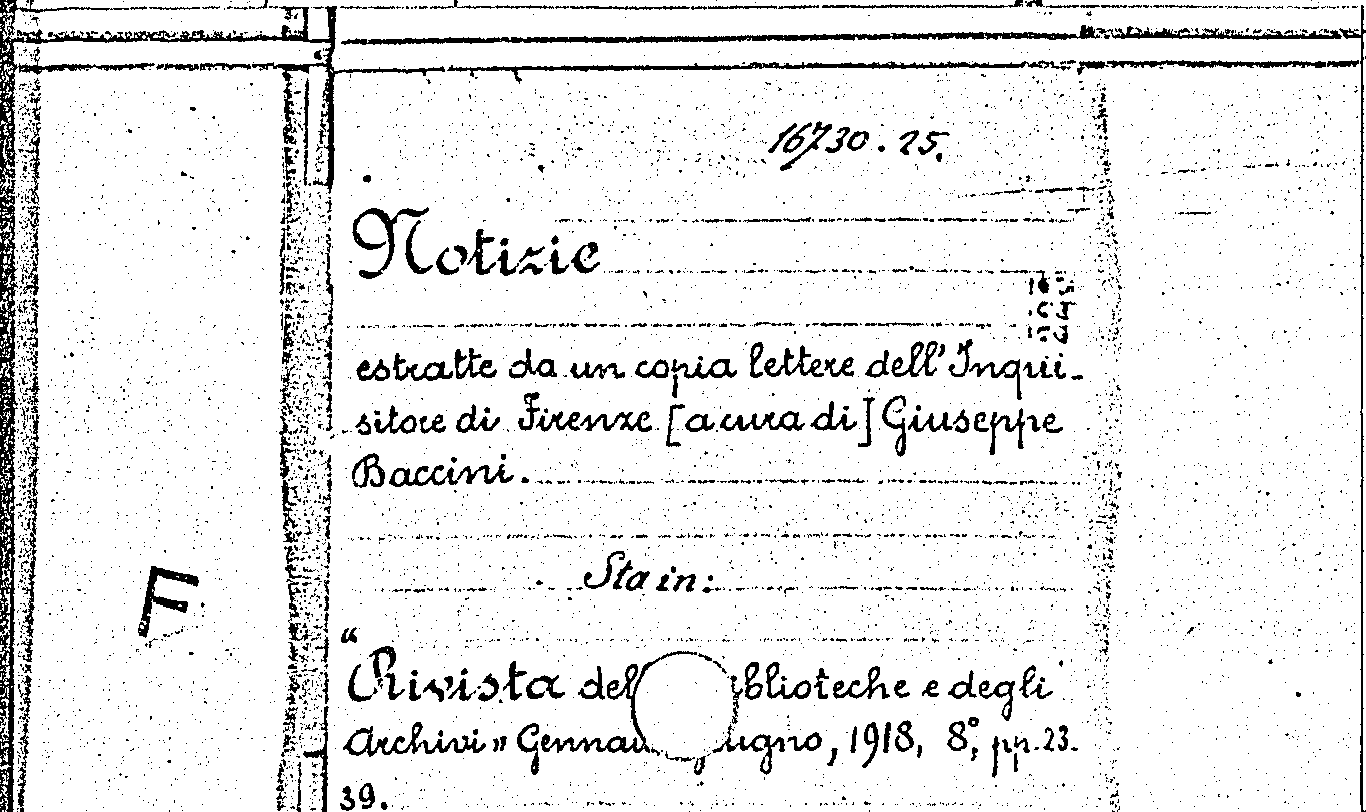 16730.25.
Notizie
estratte da un copia lettere dell'Inqui-
sitore di Firenze [a cura di] Giuseppe
Baccini.
Sta in:
F
"Rivista e degli
Archivi" 1918, 8º, pp. 23-
39.